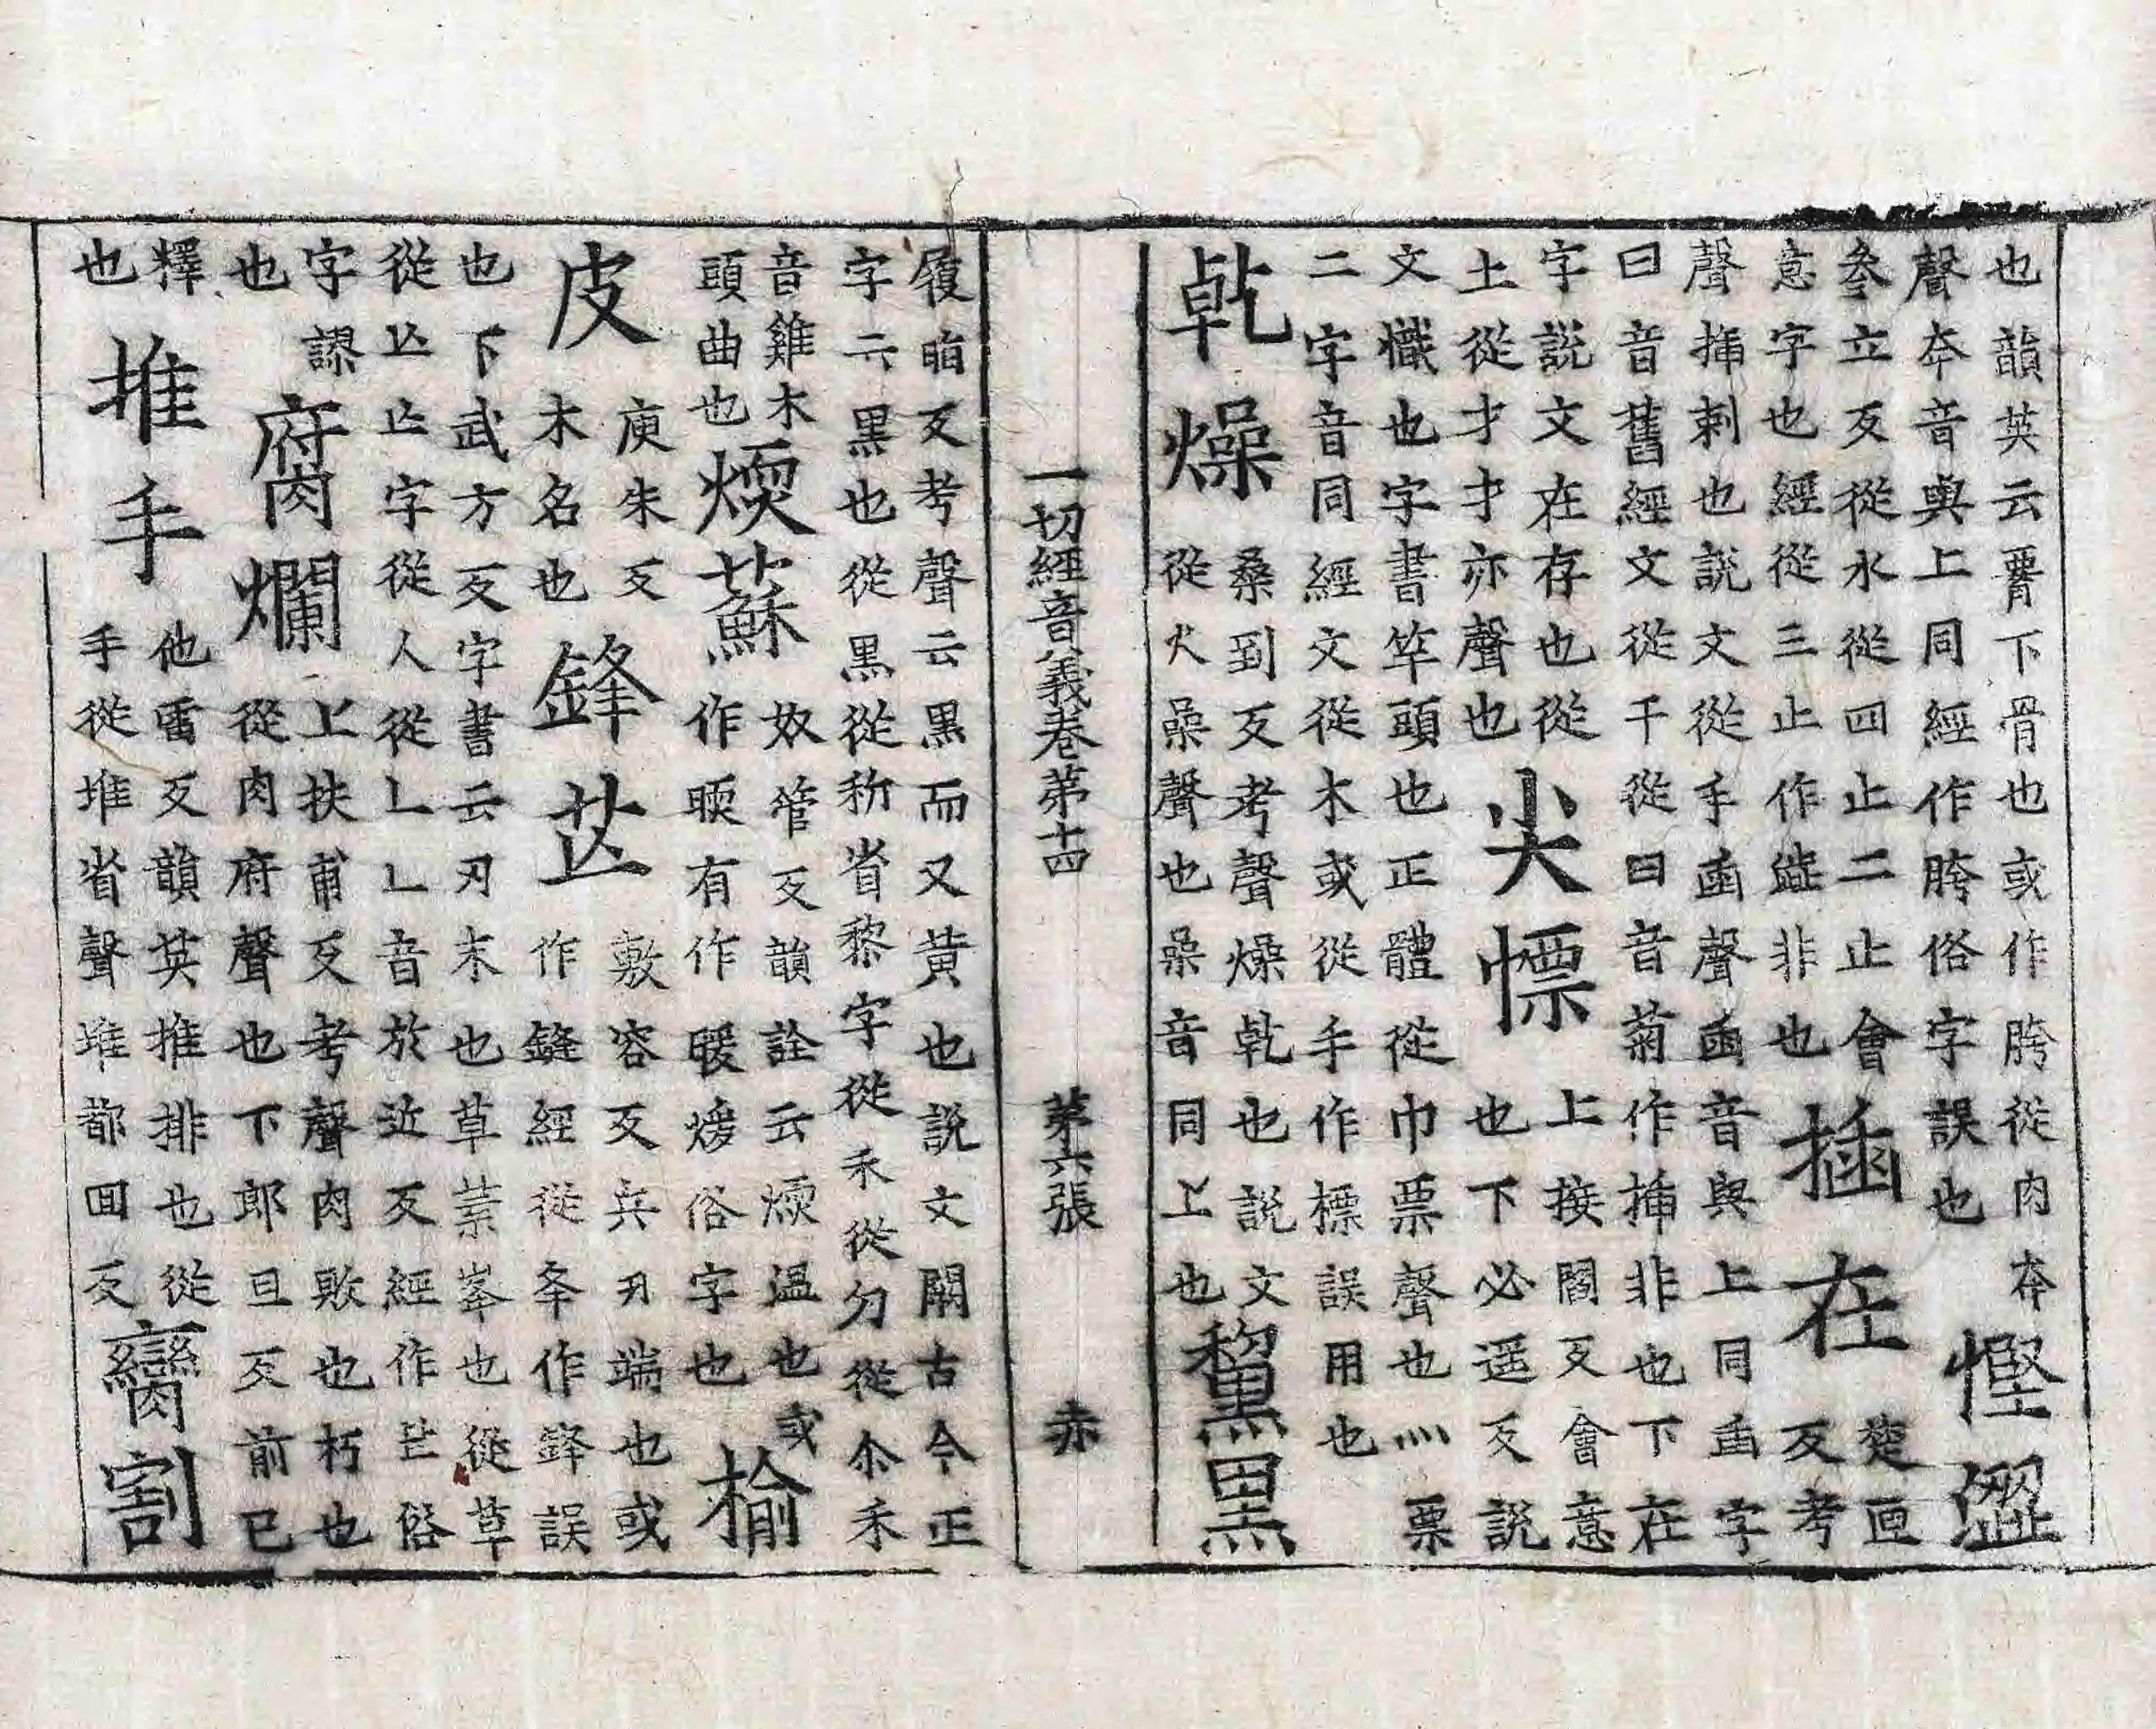 也韻英云䯗下骨也或作胯從肉夲
聲夲音與上同經作胯俗字誤也
慳澀
參立反從水從四止二止會
意字也經從三止作澁非也
插在
楚匣
反考
聲揷刺也說文從手臿聲臿音與上同臿字
曰音舊經文從干從臼音菊作揷非也下在
字說文在存也從
土從才才亦聲聲也
尖幖
上接閻反會意
也下必遥反說
文幟也字書竿頭也正體從巾票聲也灬票
二字音同經文從木或從手作標誤用也
乾燥
桑到反考聲燥乾也說文
從火喿聲也喿音同上也
黧黒
一切經音義卷苐十四
苐六張
赤
履𣅿反考聲云黒而又黃也說文闕古今正
字云黒也從黒從称省黎字從禾從勿從尒禾
音雞木
頭曲也
煗蘇
奴管反韻詮云煗温也或
作㬉有作暖煖俗字也
榆
皮
庾朱反
木名也
鋒芒
敷容反兵刃端也或
作鏠經從夆作鋒誤
也下武方反字書云刃末也草葉峯也從草
從亾亾字從人從乚乚音於近反經作芒俗
字謬
也
腐爛
上扶甫反考聲肉敗也朽也
從肉府聲也下郎旦反前已
釋
也
推手
他雷反韻英推排也從
手從堆省聲堆都回反
臠割